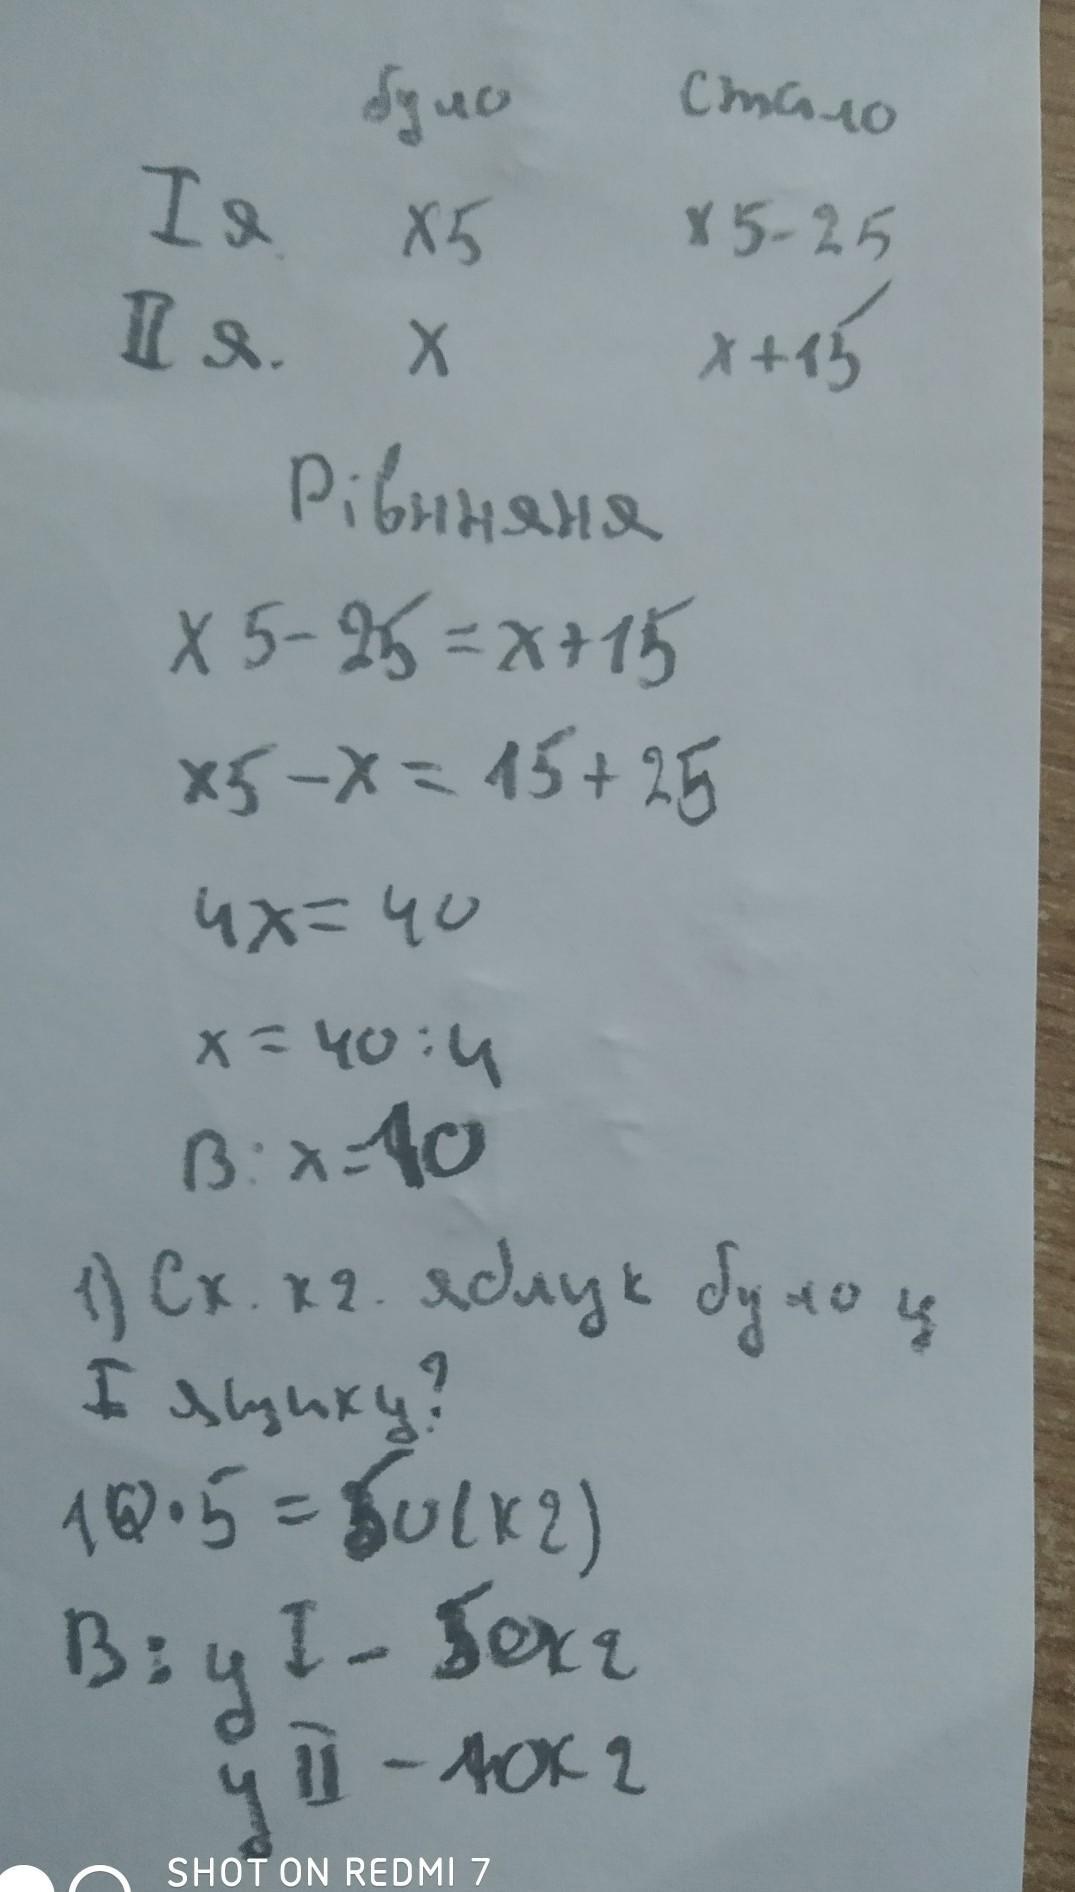 було стало
I я. x5 x5-25
II я. x x+15
Рівнняня
x5-25=x+15
x5-x=15+25
4x=40
x=40:4
В: x=10
1) Ск. кг. яблук було у
I ящику?
10·5=50(кг)
В: у I - 50кг
у II - 10кг
SHOT ON REDMI 7